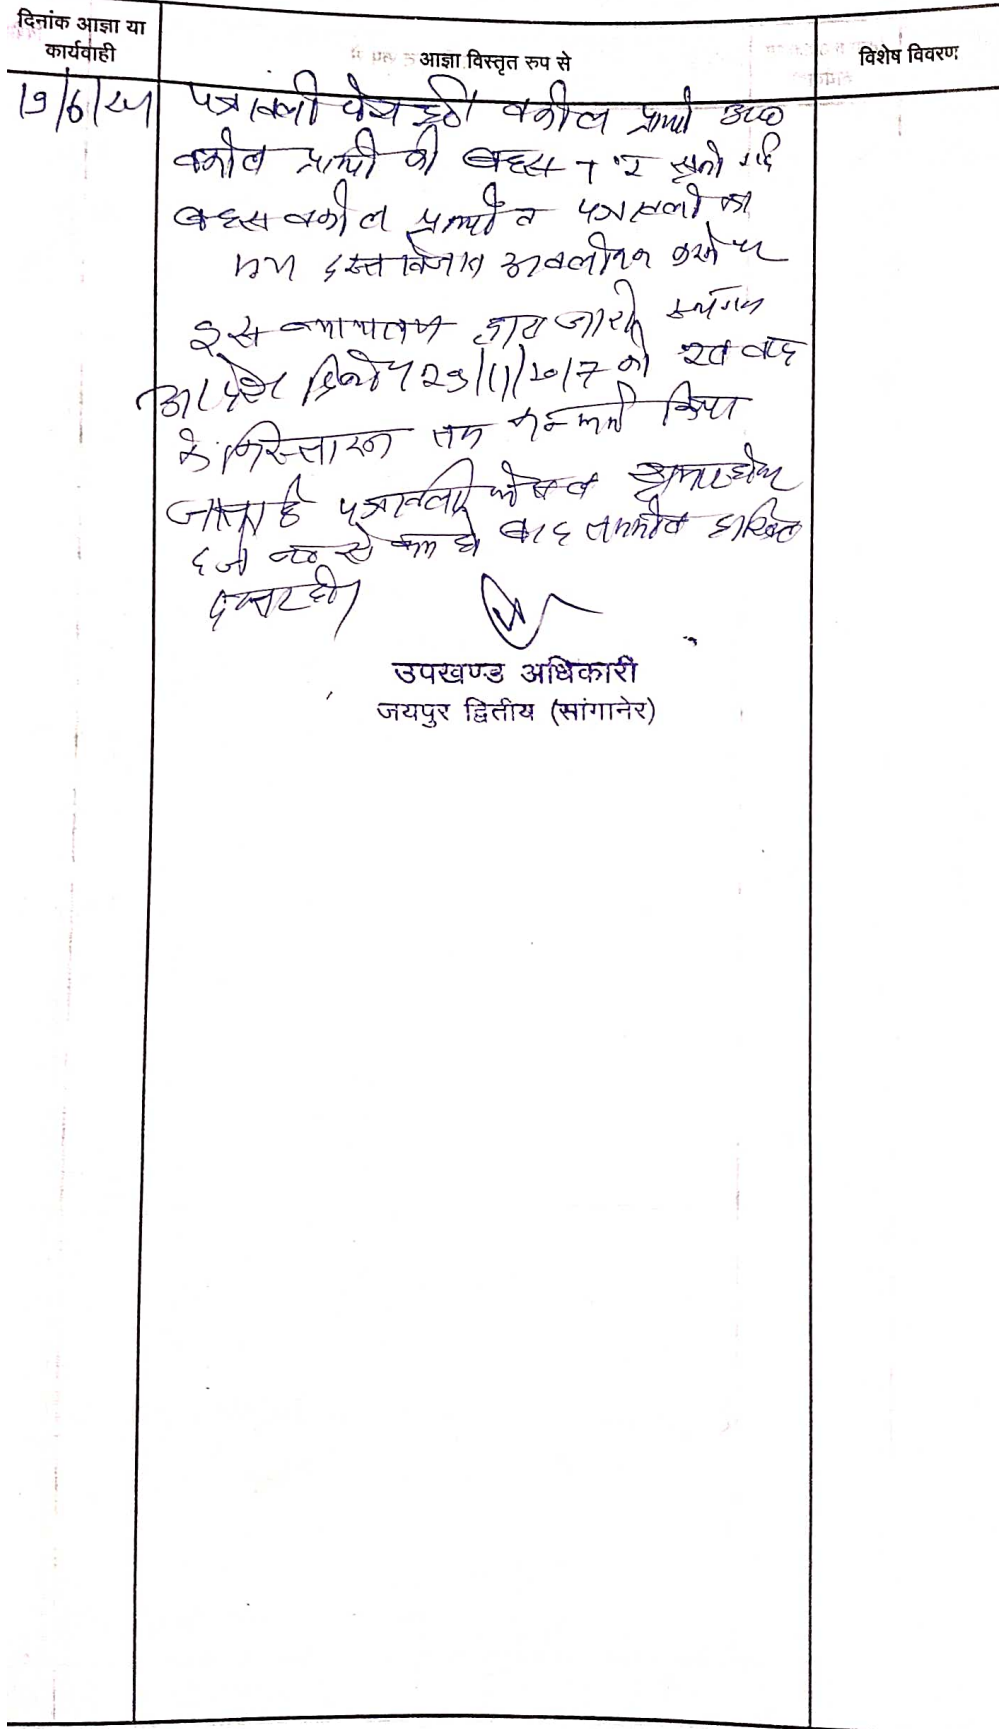 दिनांक आज्ञा या
कार्यवाही
आज्ञा विस्तृत रुप से
विशेष विवरण
19/6/24
पत्रावली पेश हुई। वकील प्रार्थी उप०
वकील प्रार्थी की बहस सुनी गई
बहस वकील प्रार्थी व पत्रावली का
मय दस्तावेजात अवलोकन करने पर
इस न्यायालय द्वारा जारी स्थगन
आदेश दिनांक 29/11/2017 को वाद
के निस्तारण तक कन्फर्म किया
जाता है पत्रावली फैसल शुमार होकर
दर्ज नम्बर से कम हो बाद तकमील दाखिल
दफ्तर हो।
उपखण्ड अधिकारी
जयपुर द्वितीय (सांगानेर)